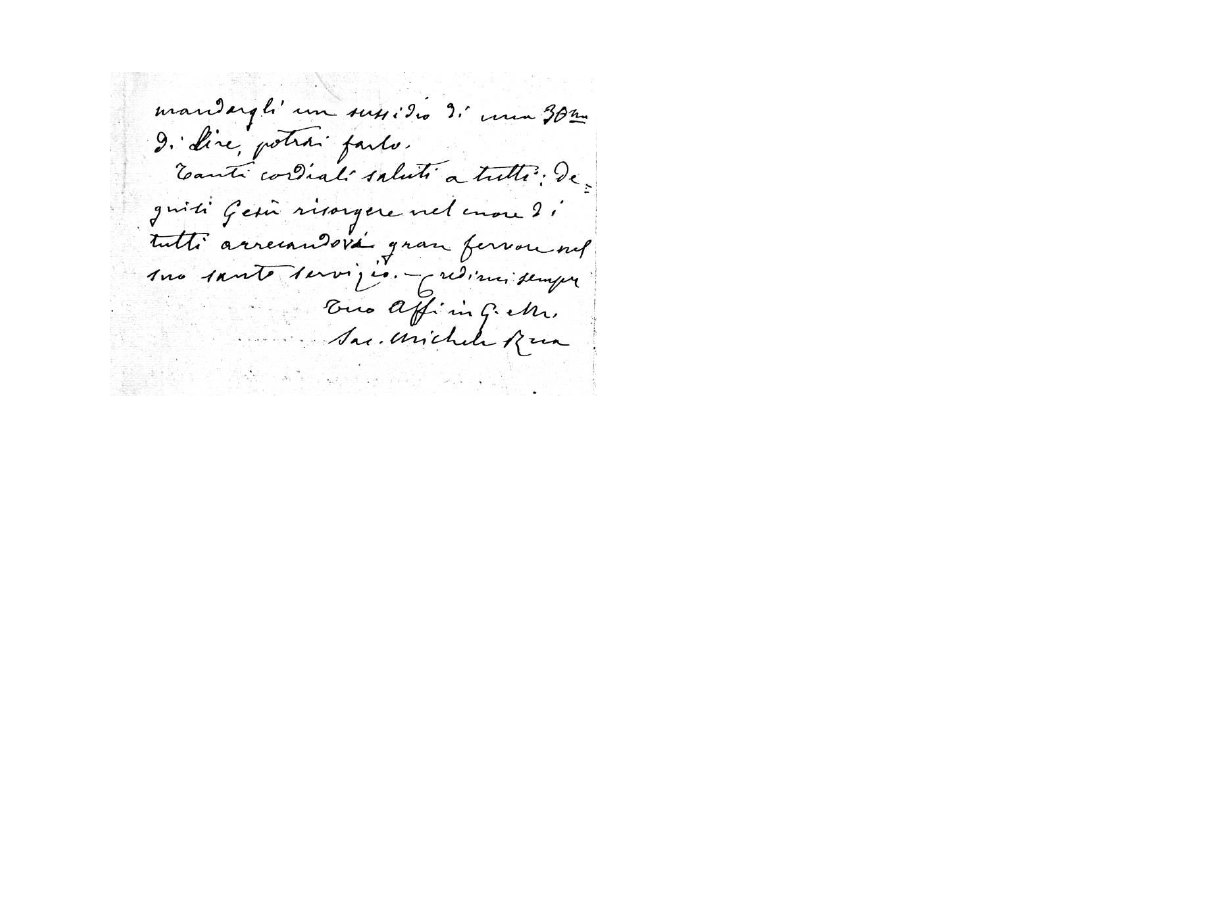 mandargli un sussidio di una 30na
di Lire, potrai farlo.
Tanti cordiali saluti a tutti: De=
gnisi Gesù risorgere nel cuore di
tutti arrecandovi gran fervore nel
suo santo servizio. — Credimi sempre
Tuo Aff. in G. e M.
Sac. Michele Rua